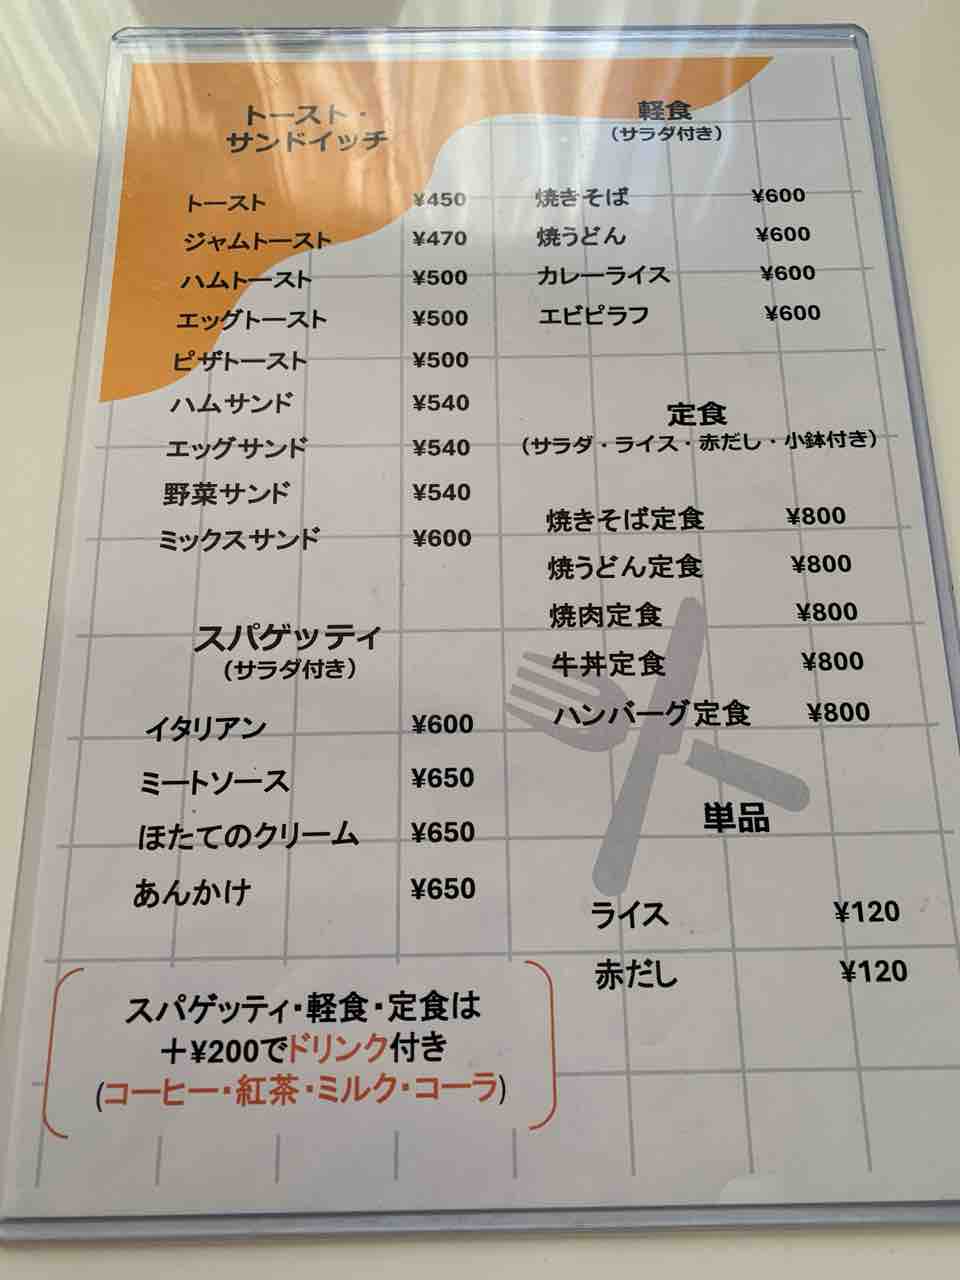 トースト・
サンドイッチ
トースト ¥450
ジャムトースト ¥470
ハムトースト ¥500
エッグトースト ¥500
ピザトースト ¥500
ハムサンド ¥540
エッグサンド ¥540
野菜サンド ¥540
ミックスサンド ¥600
スパゲッティ
(サラダ付き)
イタリアン ¥600
ミートソース ¥650
ほたてのクリーム ¥650
あんかけ ¥650
スパゲッティ・軽食・定食は
＋¥200でドリンク付き
(コーヒー・紅茶・ミルク・コーラ)
軽食
(サラダ付き)
焼きそば ¥600
焼うどん ¥600
カレーライス ¥600
エビピラフ ¥600
定食
(サラダ・ライス・赤だし・小鉢付き)
焼きそば定食 ¥800
焼うどん定食 ¥800
焼肉定食 ¥800
牛丼定食 ¥800
ハンバーグ定食 ¥800
単品
ライス ¥120
赤だし ¥120